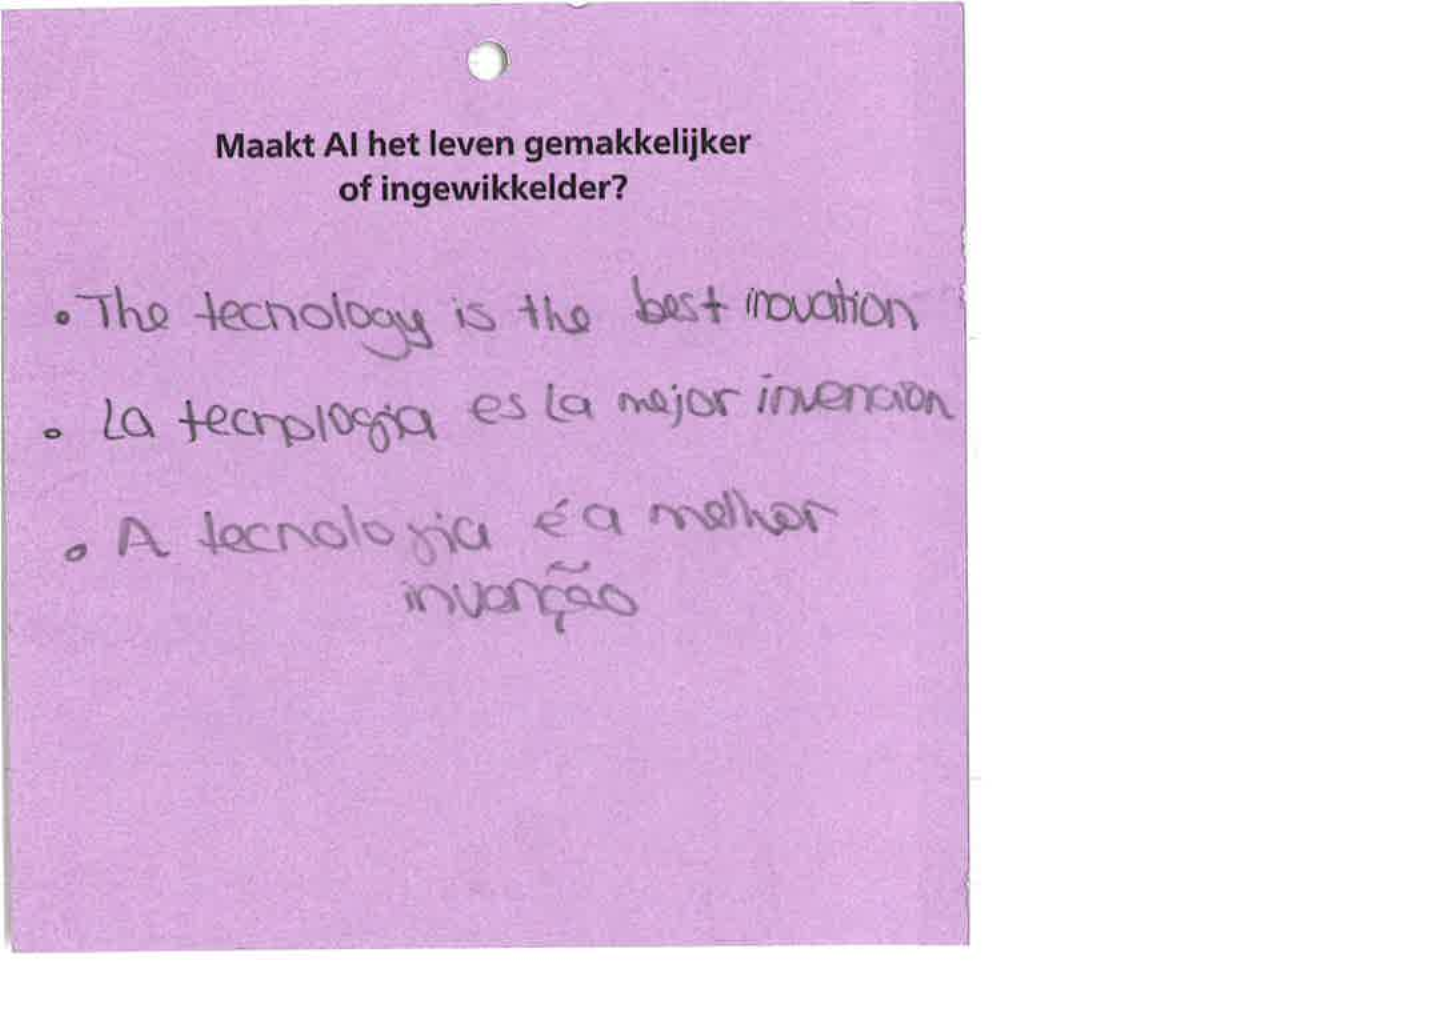 Maakt AI het leven gemakkelijker
of ingewikkelder?
• The tecnology is the best inovation
• La tecnologia es la mejor invencion
• A tecnologia é a melhor
invenção